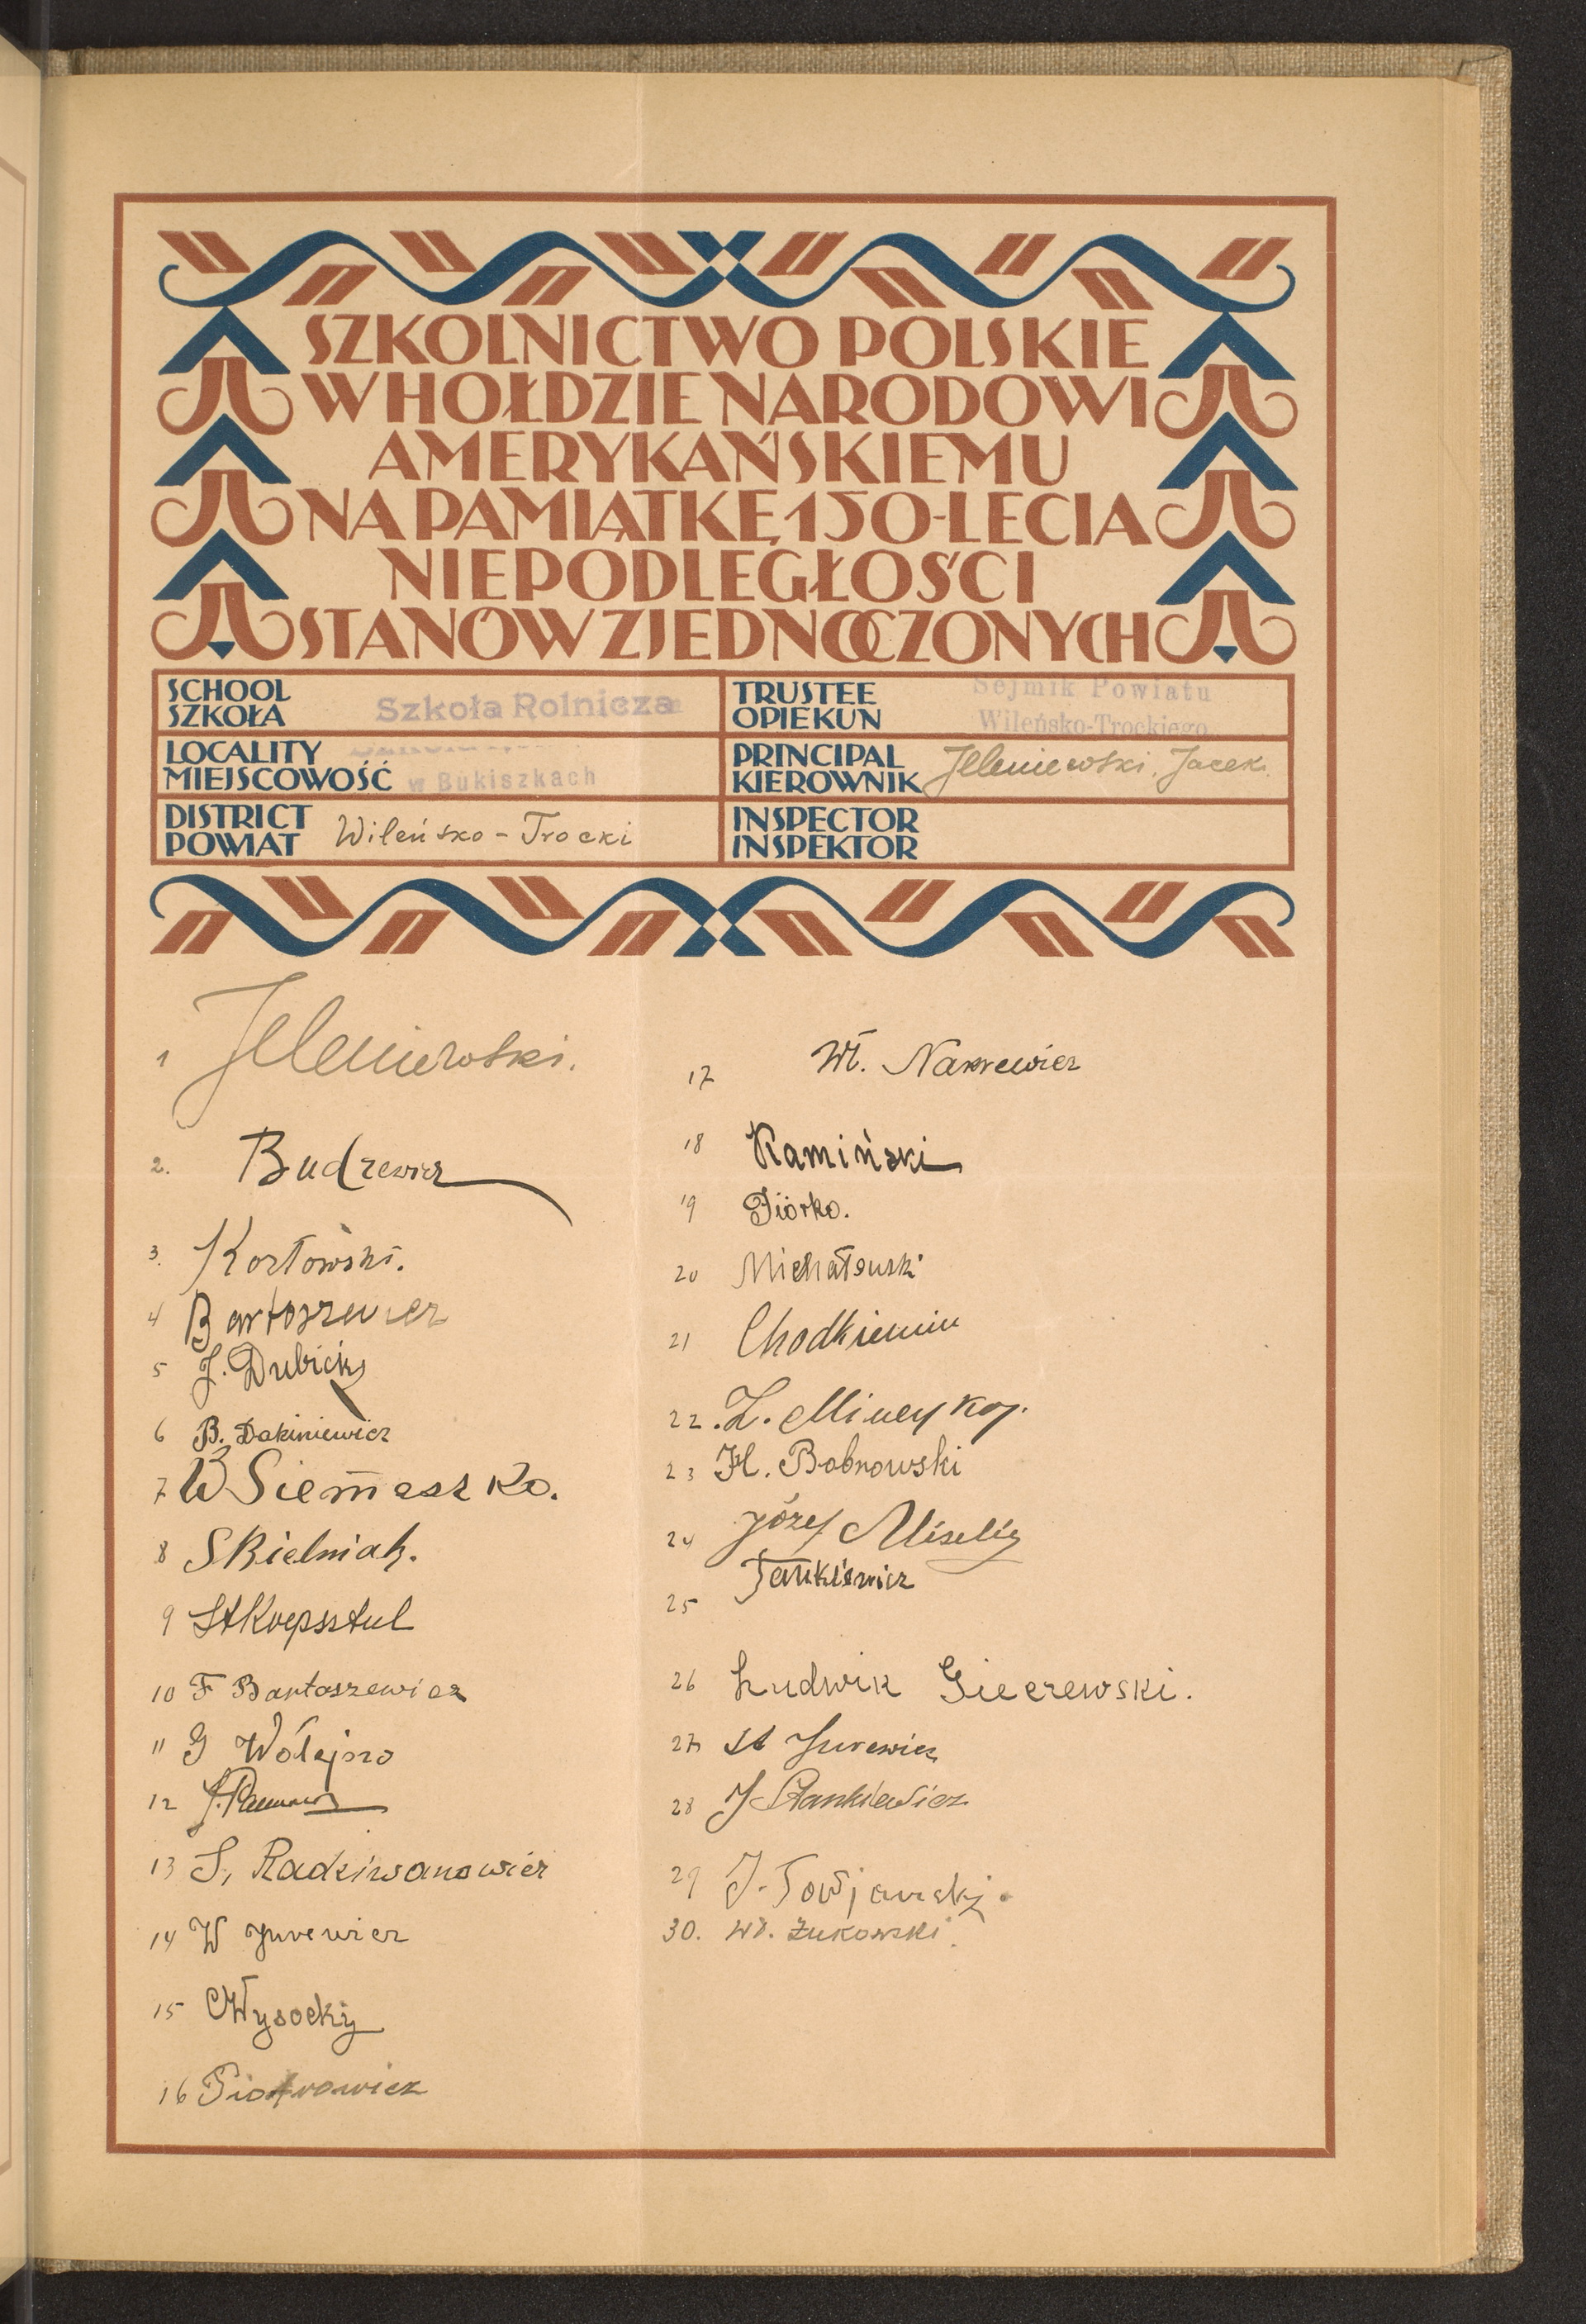 SZKOLNICTWO POLSKIE
W HOŁDZIE NARODOWI
AMERYKAŃSKIEMU
NA PAMIĄTKĘ 150-LECIA
NIEPODLEGŁOŚCI
STANÓW ZJEDNOCZONYCH
SCHOOL
SZKOŁA
Szkoła Rolnicza
LOCALITY
MIEJSCOWOŚĆ
w Bukiszkach
DISTRICT
POWIAT
Wileńsko - Trocki
TRUSTEE
OPIEKUN
Sejmik Powiatu
Wileńsko-Trockiego
PRINCIPAL
KIEROWNIK
Jeleniewski, Jacek
INSPECTOR
INSPEKTOR
1 Jeleniewski.
2. Budzewicz
3. Kozłowski.
4 Bartoszewicz
5 J. Dubicki
6 B. Dakiniewicz
7 W Siemaszko.
8 S Bielniak.
9 St Koepsztul
10 F Bartoszewicz
11 G Wołejszo
12
13 S. Radziwanowicz
14 W Jurewicz
15 Wysocki
16 Piotrowicz
17 Wł. Narwewicz
18 Kamiński
19 Fiorko.
20 Michałowski
21 Chodkiewicz
22. Z. Minceyko
23 H. Bobrowski
24 Józef Misełis
25 Jankiewicz
26 Ludwik Gieczewski.
27 St Jurewicz
28 J Stankiewicz
29 J. Towjanski.
30. Wł. Żukowski.